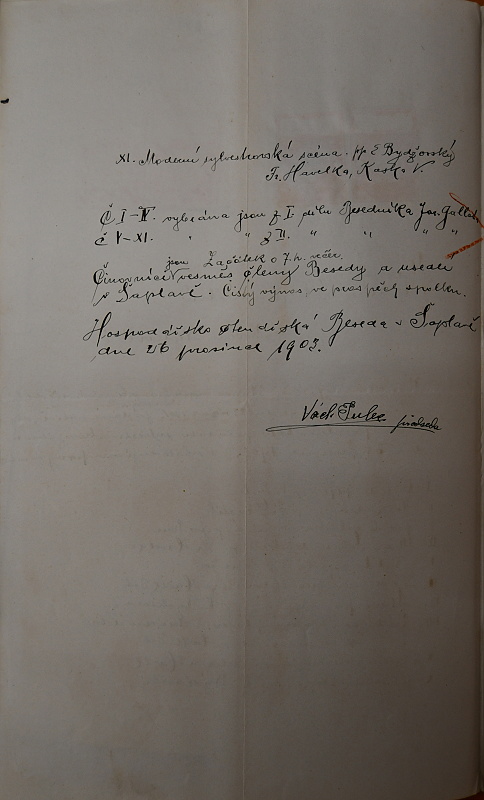 XI. Moderní sylvestrovská scéna. pp E Bydžovský
Fr. Havelka, Kaska V.
Č I–IV. vybrána jsou z I. dílu Besedníka Jos.
Č V–XI. " " z II. " " " "
jsou Začátek o 7. h. večer.
Činovníci vesměs členy Besedy a
v Šaplavě. Čistý výnos, ve prospěch spolku.
Hospodářsko čtenářská Beseda v Šaplavě
dne 26 prosince 1903.
Václ. předseda